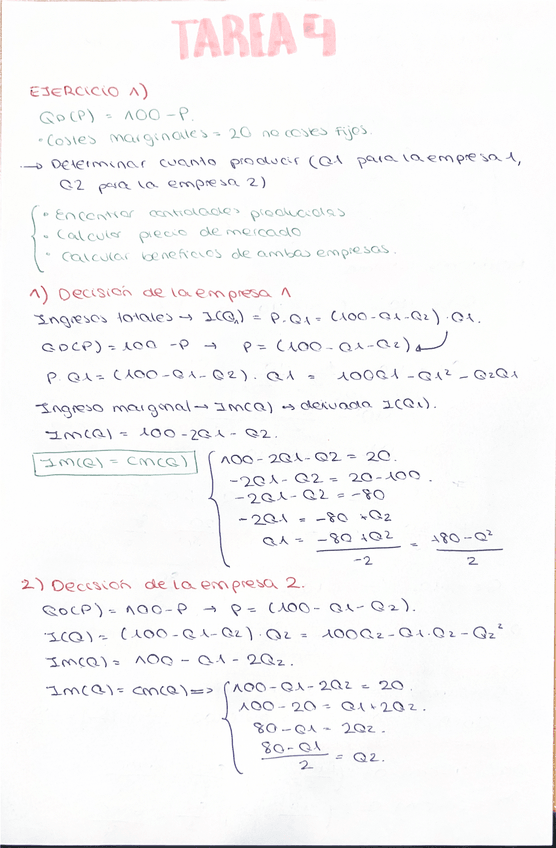 TAREA 4
EJERCICIO 1)
QD(P) = 100 - P.
• Costes marginales = 20 no costes fijos.
→ Determinar cuanto producir (Q1 para la empresa 1,
Q2 para la empresa 2)
• Encontrar cantidades producidas
• Calcular precio de mercado
• Calcular beneficios de ambas empresas.
1) Decisión de la empresa 1
Ingresos totales → I(Q1) = P.Q1 = (100-Q1-Q2).Q1.
QD(P) = 100 - P → P = (100-Q1-Q2)
P.Q1 = (100-Q1-Q2).Q1 = 100Q1 - Q1² - Q2Q1
Ingreso marginal → IM(Q) → derivada I(Q1).
IM(Q) = 100 - 2Q1 - Q2.
IM(Q) = CM(Q)
100 - 2Q1 - Q2 = 20.
-2Q1 - Q2 = 20 - 100.
-2Q1 - Q2 = -80
-2Q1 = -80 + Q2
Q1 = (-80 + Q2)/-2 = (+80 - Q²)/2
2) Decisión de la empresa 2.
QD(P) = 100 - P → P = (100 - Q1 - Q2).
I(Q) = (100-Q1-Q2).Q2 = 100Q2 - Q1.Q2 - Q2²
IM(Q) = 100 - Q1 - 2Q2.
IM(Q) = CM(Q) =>
100 - Q1 - 2Q2 = 20.
100 - 20 = Q1 + 2Q2.
80 - Q1 = 2Q2.
(80 - Q1)/2 = Q2.